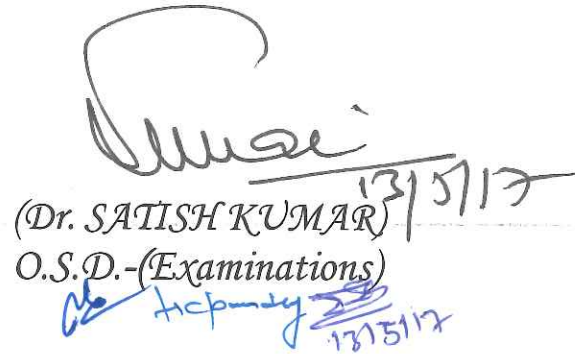 13/5/17
(Dr. SATISH KUMAR)
O.S.D.-(Examinations)
13/5/17